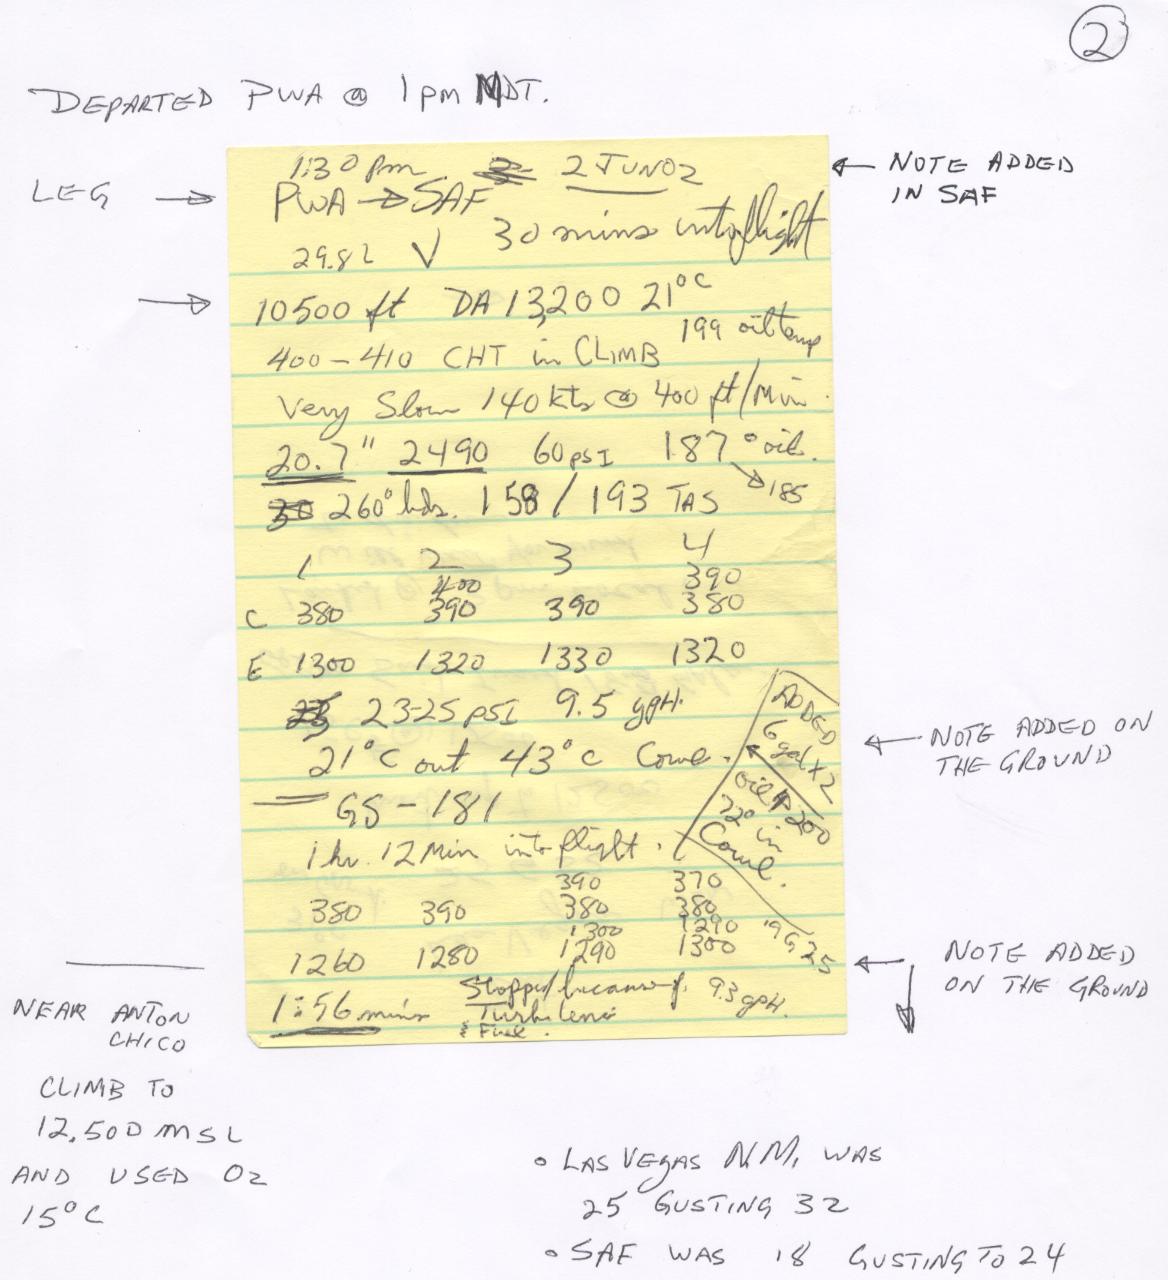 2
DEPARTED PWA @ 1 pm MDT.
1:30 pm 2 JUN 02
← NOTE ADDED
IN SAF
LEG →
PWA → SAF
29.82 V 30 mins into flight
→ 10500 ft DA 13,200 21°C
199 oil temp
400-410 CHT in CLIMB
Very Slow 140 kts @ 400 ft/Min.
20.7" 2490 60 psI 187° oil.
→ 185
260° hdg. 158 / 193 TAS
1 2 3 4
400 390
C 380 390 390 380
E 1300 1320 1330 1320
23-25 psI 9.5 gpH.
21°C out 43°C Cowl.
ADDED
6
gal x 2
oil 200
220 in
Cowl.
← NOTE ADDED ON
THE GROUND
GS - 181
1 hr. 12 Min into flight.
390 370
380 390 380 380
1300 1290
1260 1280 1290 1300
19G25
← NOTE ADDED
ON THE GROUND
1:56 mins
Stopped because of
Turbulence
& Fuel.
9.3 gpH.
NEAR ANTON
CHICO
CLIMB TO
12,500 MSL
AND USED O2
15°C
• LAS VEGAS N.M. WAS
25 GUSTING 32
• SAF WAS 18 GUSTING TO 24